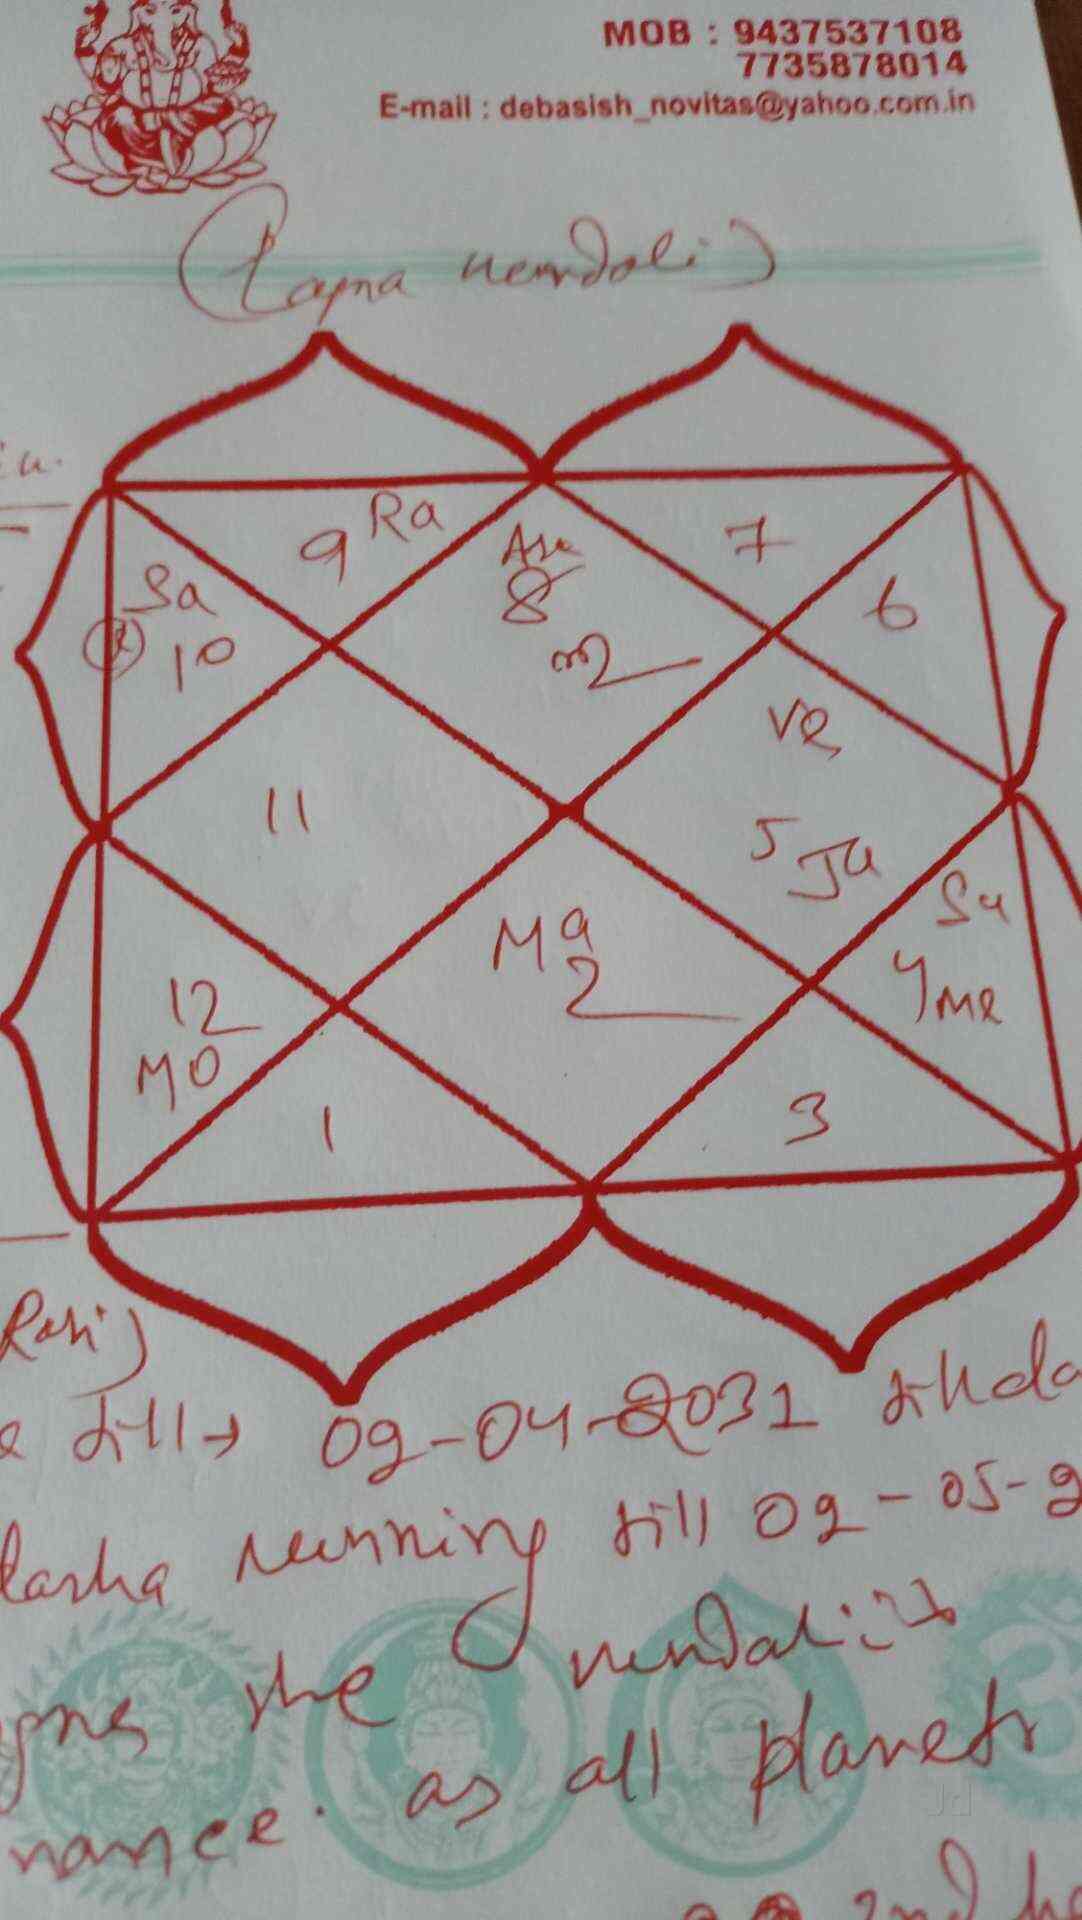 MOB : 9437537108
7735878014
E-mail : debasish_novitas@yahoo.com.in
(Lagna kundali)
9 Ra
Asc
8
7
6
Sa
10
Ve
5 Ju
11
Su
4 Me
Ma
2
12
Mo
1
3
Rasi)
till → 09-04-2031
running till 09-05-
the kundali
as all planets
Jd
2nd